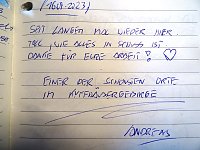 (16.09.2023)
SEIT LANGEM MAL WIEDER HIER.
TOLL, WIE ALLES IN SCHUSS IST
DANKE FÜR EURE ARBEIT! ♡
EINER DER SCHÖNSTEN ORTE
IM KYFFHÄUSERGEBIRGE
ANDREAS